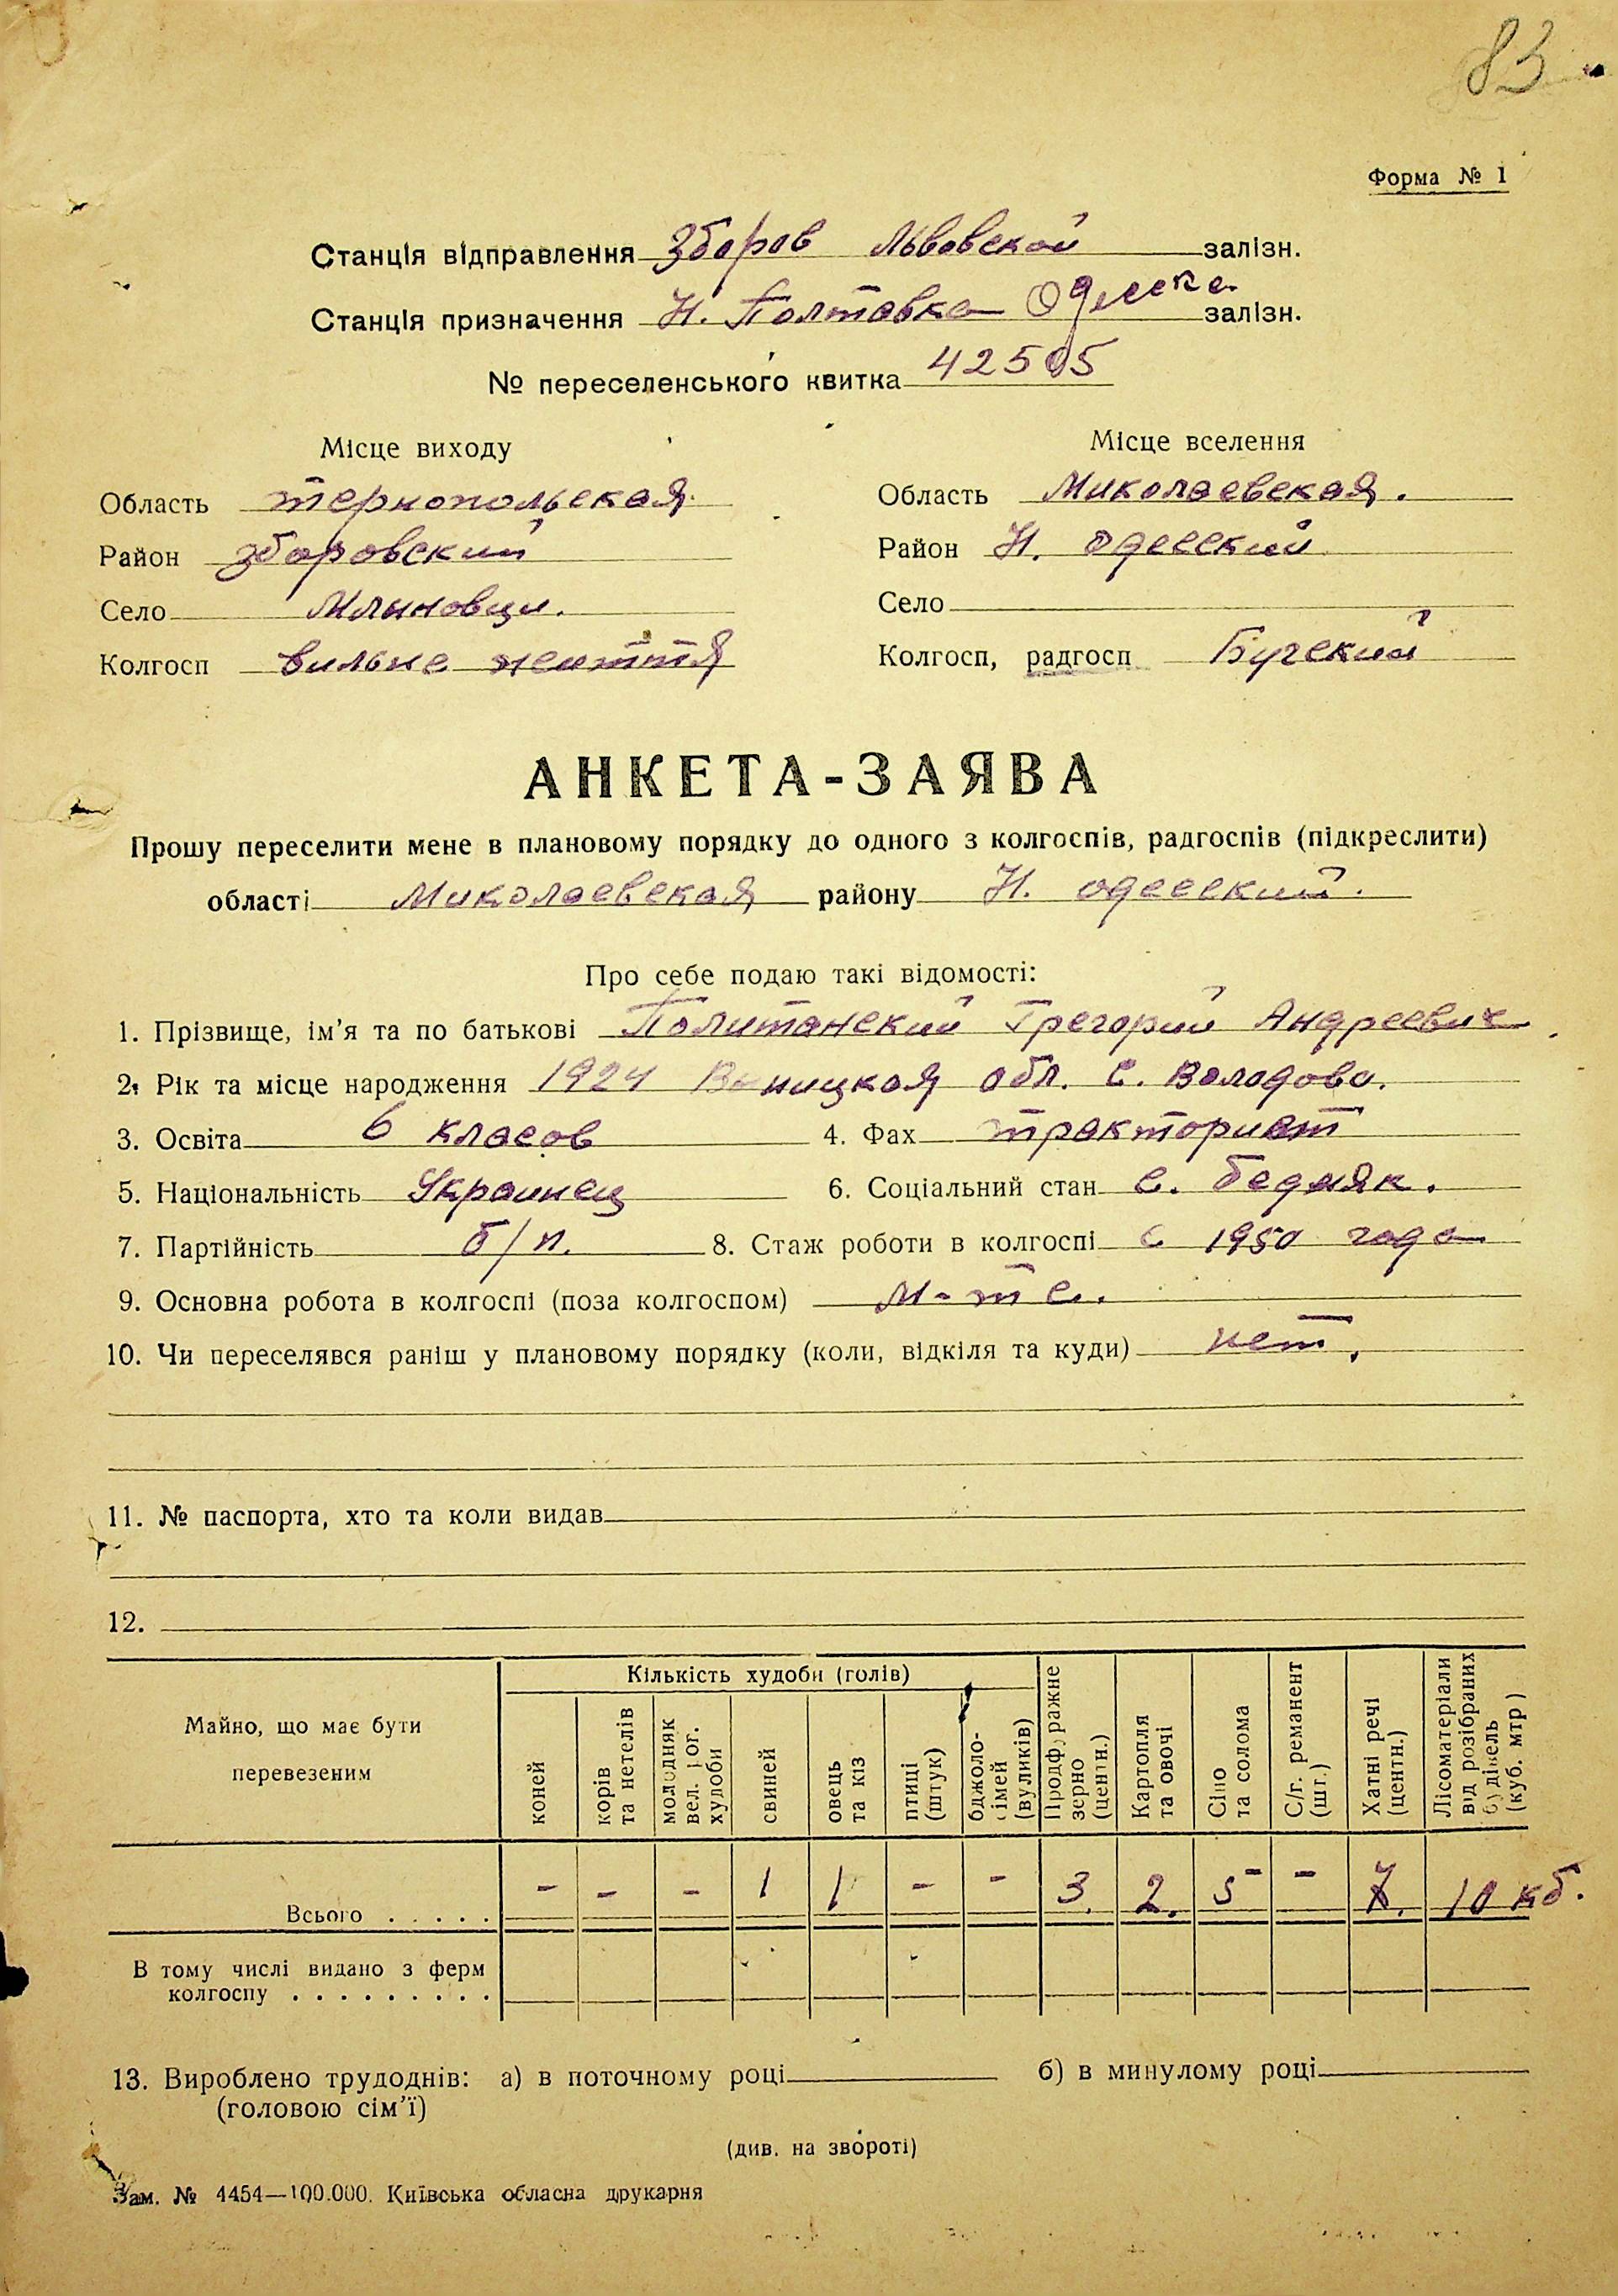 83
Форма № 1
Станція відправлення Зборов Львовской залізн.
Станція призначення Н. Полтавка Одесска залізн.
№ переселенського квитка 42505
Місце виходу
Місце вселення
Область тернопольская
Область Миколаевская.
Район зборовский
Район Н. одесский
Село Млыновци.
Село
Колгосп вильне життя
Колгосп, радгосп Бугский
АНКЕТА-ЗАЯВА
Прошу переселити мене в плановому порядку до одного з колгоспів, радгоспів (підкреслити)
області Миколаевская району Н. одесский.
Про себе подаю такі відомості:
1. Прізвище, ім’я та по батькові Политанский Грегорий Андреевич
2. Рік та місце народження 1924 Виницкая обл. С. Володова.
3. Освіта 6 класов 4. Фах тракторист
5. Національність Украинец 6. Соціальний стан с. бедняк.
7. Партійність б/п. 8. Стаж роботи в колгоспі с 1950 года
9. Основна робота в колгоспі (поза колгоспом) м-т с.
10. Чи переселявся раніш у плановому порядку (коли, відкіля та куди) нет.
11. № паспорта, хто та коли видав
12.
Майно, що має бути перевезеним
Кількість худоби (голів)
коней
корів та нетелів
молодняк вел. рог. худоби
свиней
овець та кіз
птиці (штук)
бджоло-сімей (вуликів)
Продфуражне зерно (центн.)
Картопля та овочі
Сіно та солома
С/г. реманент (шт.)
Хатні речі (центн.)
Лісоматеріали від розібраних будівель (куб. мтр)
Всього . . . . . - - - 1 1 - - 3. 2. 5 - 7. 10 кб.
В тому числі видано з ферм
колгоспу . . . . . . . . .
13. Вироблено трудоднів: а) в поточному році б) в минулому році
(головою сім’ї)
(див. на звороті)
Зам. № 4454—100.000. Київська обласна друкарня